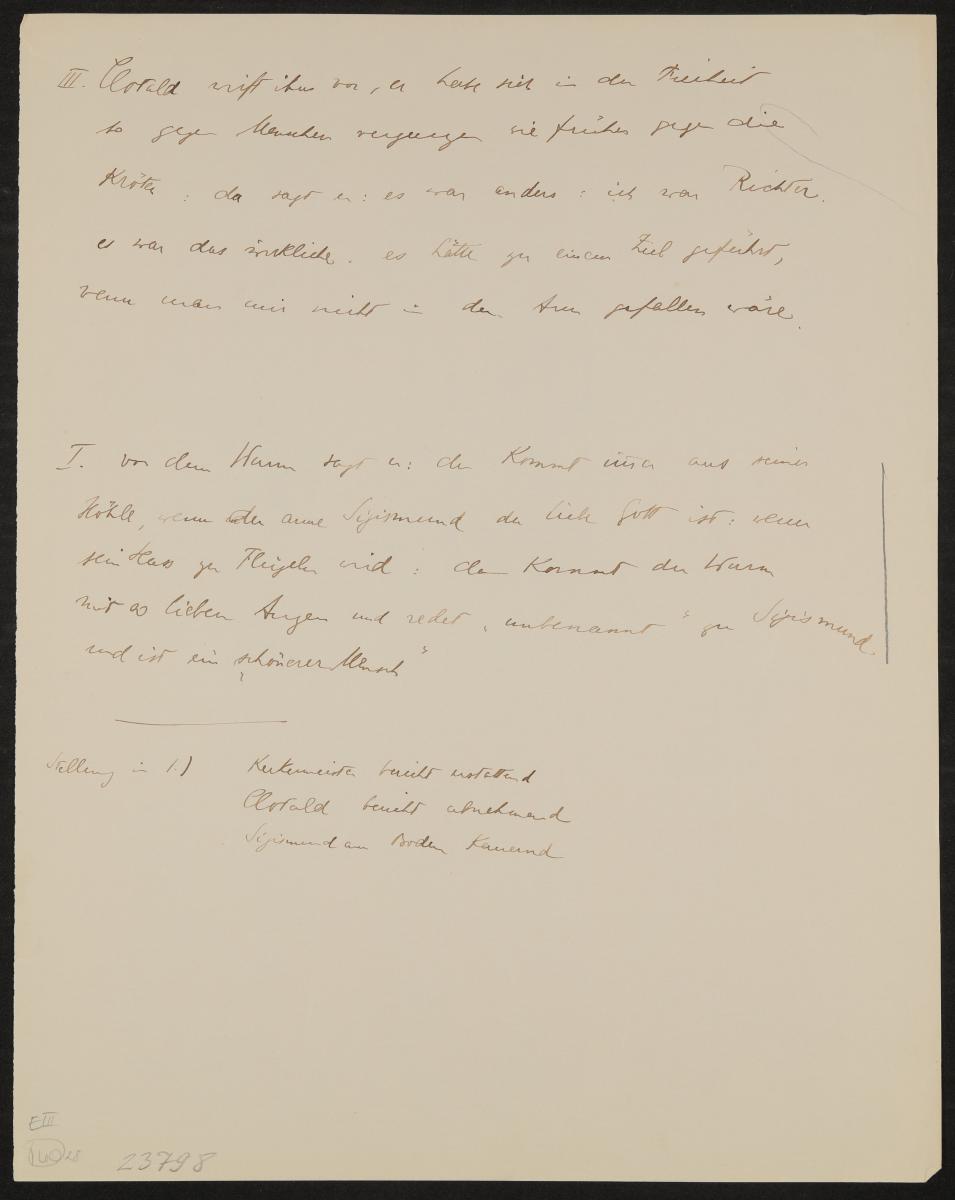 III. Clotald wirft ihm vor, er habe sich in der Freiheit
so gegen Menschen vergangen wie früher gegen die
Kröten : da sagt er : es war anders : ich war Richter.
es war das wirkliche. es hätte zu einem Ziel geführt,
wenn man mir nicht in den Arm gefallen wäre.
I. von dem Wurm sagt er: der kommt immer aus seiner
Höhle, wenn der arme Sigismund der liebe Gott ist: wenn
sein Hass zu Flügeln wird : da kommt der Wurm
mit so lieben Augen und redet „unbenannt" zu Sigismund.
und ist ein „schönerer Mensch"
Stellung in 1.) Kerkermeister bericht erstattend
Clotald bericht abnehmend
Sigismund am Boden kauernd
E III
23798